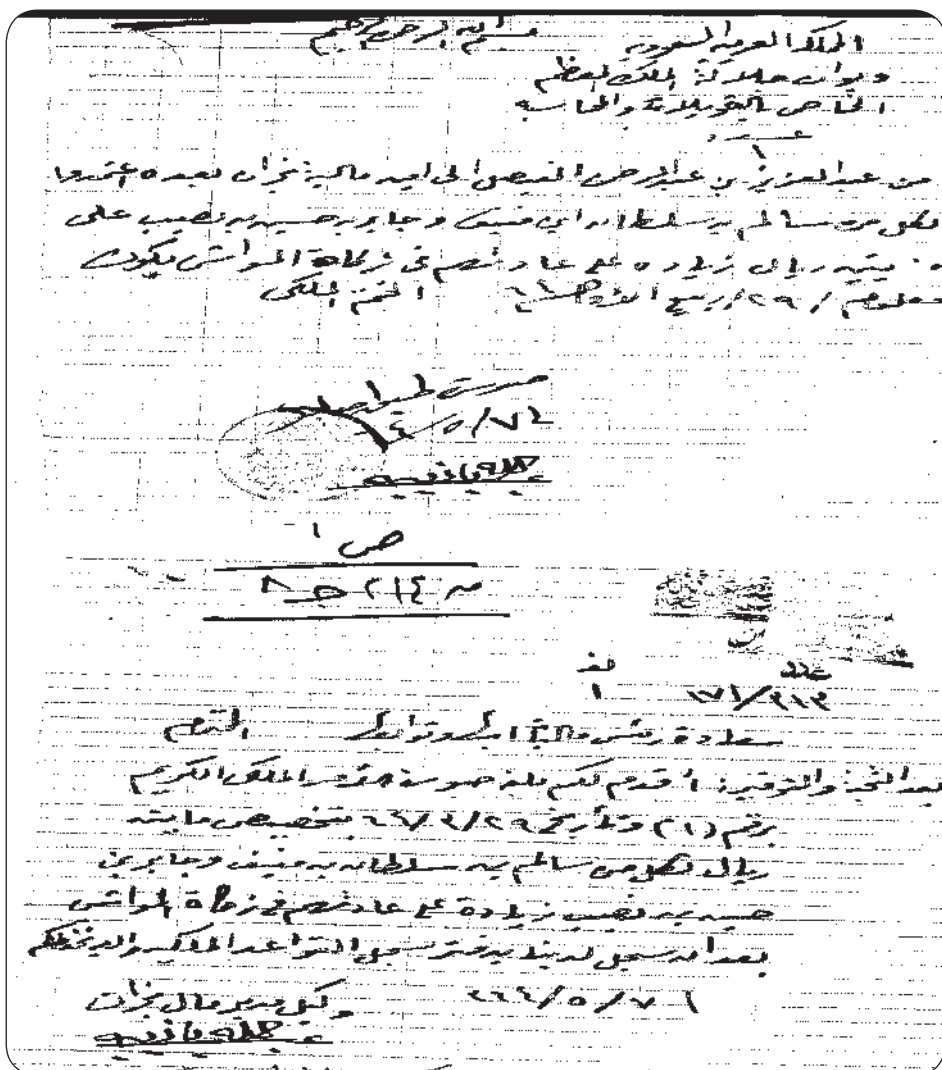 بسم الله الرحمن الرحيم
المملكة العربية السعودية
ديوان جلالة الملك المعظم
الخاص بالتحويلات والمحاسبة
عدد
١
من عبدالعزيز بن عبدالرحمن الفيصل الى امير مالية نجران بعده اعتمدوا
لكل من سالم بن سلطان ابن منيف وجابر بن حسين بن نصيب على
ميتين ريال زيادة على عادتهم في زكاة المواشي يكون
معلوم / ٢٩/ ربيع الأول الختم الملكي
صورة طبق اصلها
٧/٥/
ص ١
٢١٤ جـ ٨
عدد لف
١٧١/٣١٣ ١
سعادة رئيس مالية ابها وتوابعها المحترم
بعد التحية والتوقير: أقدم لكم طيه صورة الأمر الملكي الكريم
برقم (٢١) وتأريخ ٢٩/٣/٦٦ بتخصيص مايتين
ريال لكل من سالم بن سلطان بن منيف وجابر بن
حسين بن نصيب زيادة على عادتهم في زكاة المواشي
بعد أن سجل لدينا بدفتر سجل القواعد الملكية والله يحفظكم
٧/٥/٣٦٦ وكيل مدير مال نجران